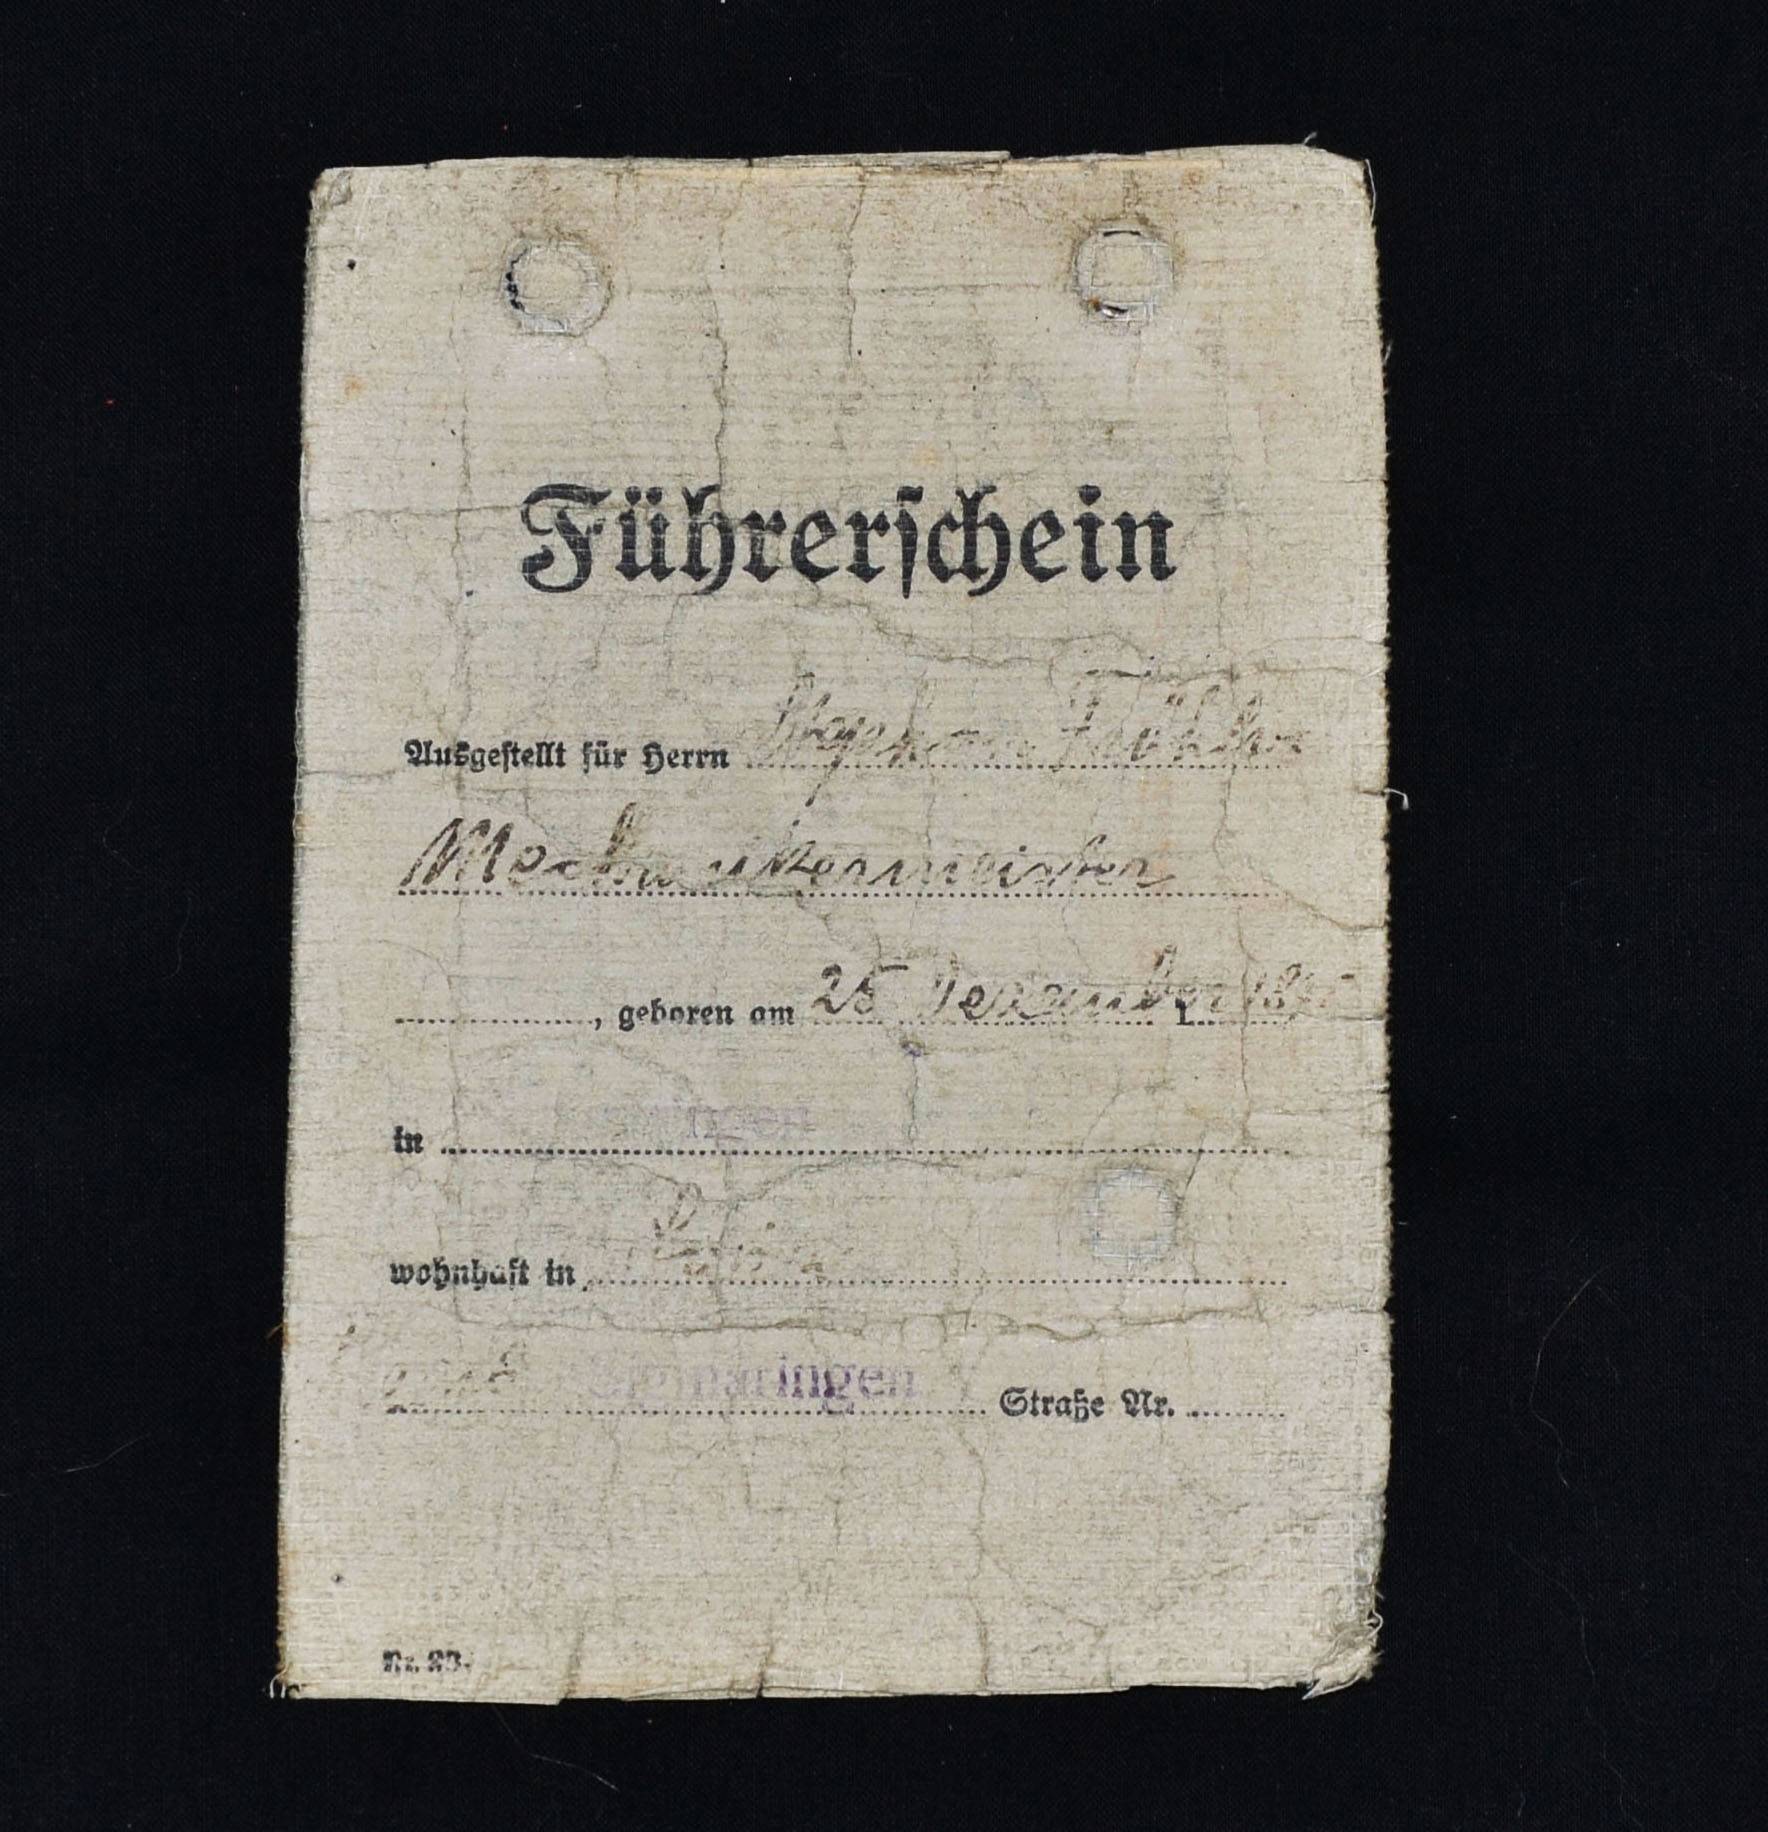 Führerschein
Ausgestellt für Herrn Stephan
Mechanikermeister
, geboren am 25 Dezember
in
wohnhaft in
Sigmaringen Straße Nr.
Nr. 23.